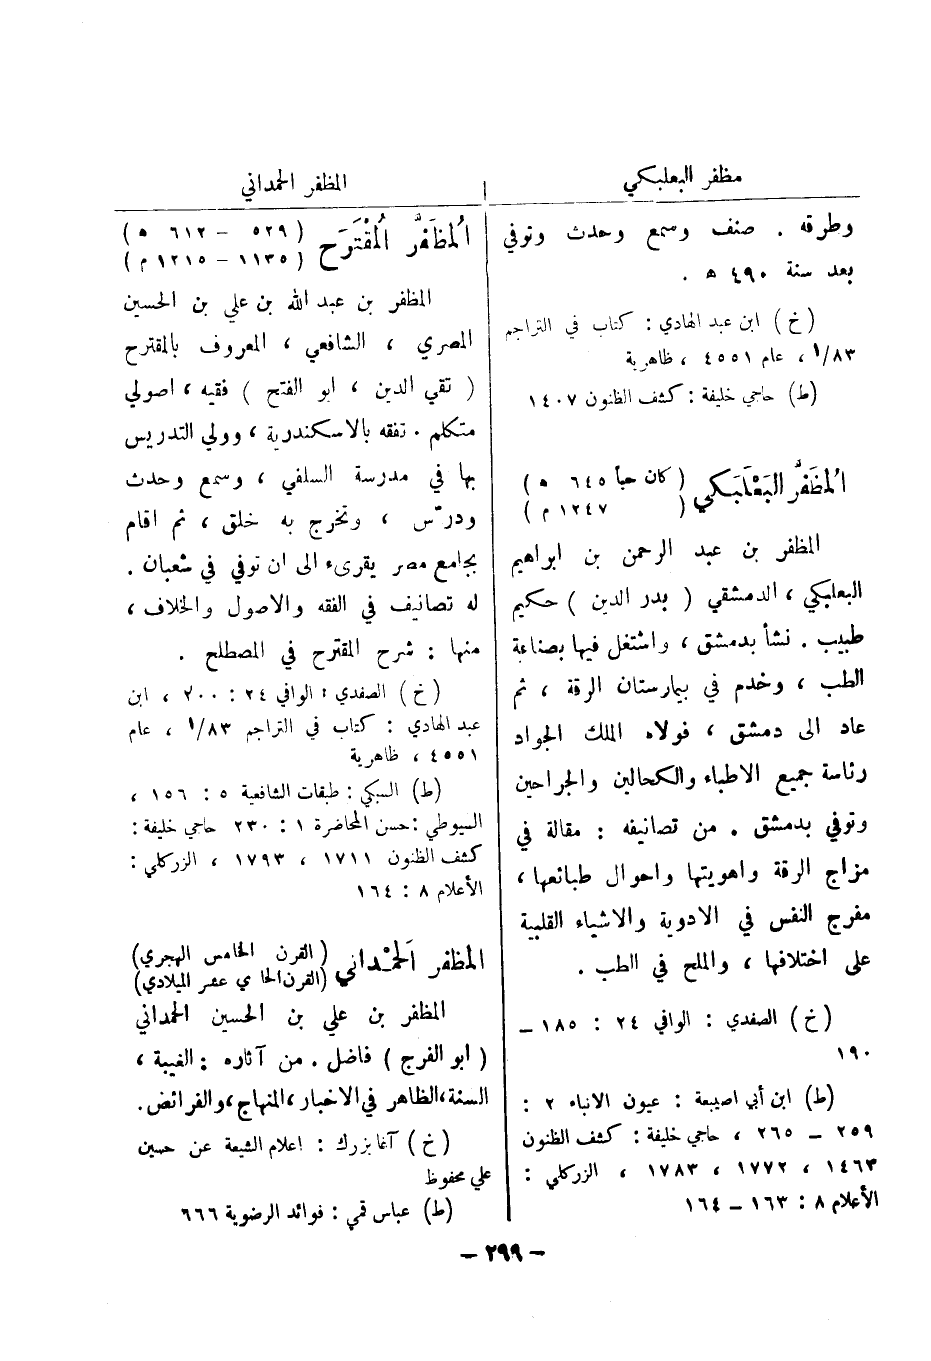 مظفر البعلبكي
المظفر الحمداني
وطرقه . صنف وسمع وحدث وتوفي
بعد سنة ٤٩٠ ه .
( خ ) ابن عبد الهادي : كتاب في التراجم
١/٨٣ ، عام ٤٥٥١ ، ظاهرية
(ط) حاجي خليفة : كشف الظنون ١٤٠٧
اَلمُظَفَّر البَعْلَبَكي ( كان حياً ٦٤٥ ه )
( ١٢٤٧ م )
المظفر بن عبد الرحمن بن ابراهيم
البعلبكي ، الدمشقي ( بدر الدين ) حكيم
طبيب . نشأ بدمشق ، واشتغل فيها بصناعة
الطب ، وخدم في بيمارستان الرقة ، ثم
عاد الى دمشق ، فولاه الملك الجواد
رئاسة جميع الاطباء والكحالين والجراحين
وتوفي بدمشق . من تصانيفه : مقالة في
مزاج الرقة واهويتها واحوال طبائعها ،
مفرج النفس في الادوية والاشياء القلبية
على اختلافها ، والملح في الطب .
( خ ) الصفدي : الوافي ٢٤ : ١٨٥ –
١٩٠
(ط) ابن أبي اصيبعة : عيون الانباء ٢ :
٢٥٩ – ٢٦٥ ، حاجي خليفة : كشف الظنون
١٤٦٣ ، ١٧٧٢ ، ١٧٨٣ ، الزركلي :
الأعلام ٨ : ١٦٣ – ١٦٤
اَلمُظَفَّر المُقْتَرَح ( ٥٢٩ – ٦١٢ ه )
( ١١٣٥ – ١٢١٥ م )
المظفر بن عبد الله بن علي بن الحسين
المصري ، الشافعي ، المعروف بالمقترح
( تقي الدين ، ابو الفتح ) فقيه ، اصولي
متكلم . تفقه بالاسكندرية ، وولي التدريس
بها في مدرسة السلفي ، وسمع وحدث
ودرّس ، وتخرج به خلق ، ثم اقام
بجامع مصر يقرىء الى ان توفي في شعبان .
له تصانيف في الفقه والاصول والخلاف ،
منها : شرح المقترح في المصطلح .
( خ ) الصفدي : الوافي ٢٤ : ٢٠٠ ، ابن
عبد الهادي : كتاب في التراجم ١/٨٣ ، عام
٤٥٥١ ، ظاهرية
(ط) السبكي : طبقات الشافعية ٥ : ١٥٦ ،
السيوطي : حسن المحاضرة ١ : ٢٣٠ حاجي خليفة :
كشف الظنون ١٧١١ ، ١٧٩٣ ، الزركلي :
الأعلام ٨ : ١٦٤
المظفر اَلحَمْداني ( القرن الخامس الهجري)
(القرن الحا ي عشر الميلادي)
المظفر بن علي بن الحسين الحمداني
( ابو الفرج ) فاضل . من آثاره : الغيبة ،
السنة ، الظاهر في الاخبار ، المنهاج ، والفرائض .
( خ ) آغا بزرك : اعلام الشيعة عن حسين
علي محفوظ
(ط) عباس قمي : فوائد الرضوية ٦٦٦
– ٢٩٩ –